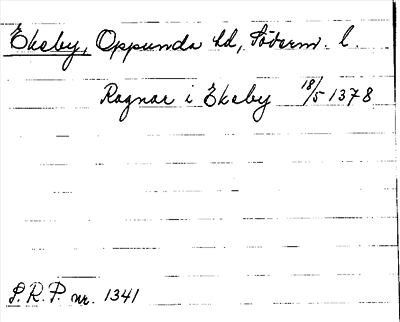 Ekeby, Oppunda hd, Söderm. l.
Ragnar i Ekeby 18/5 1378
S.R.P. nr. 1341